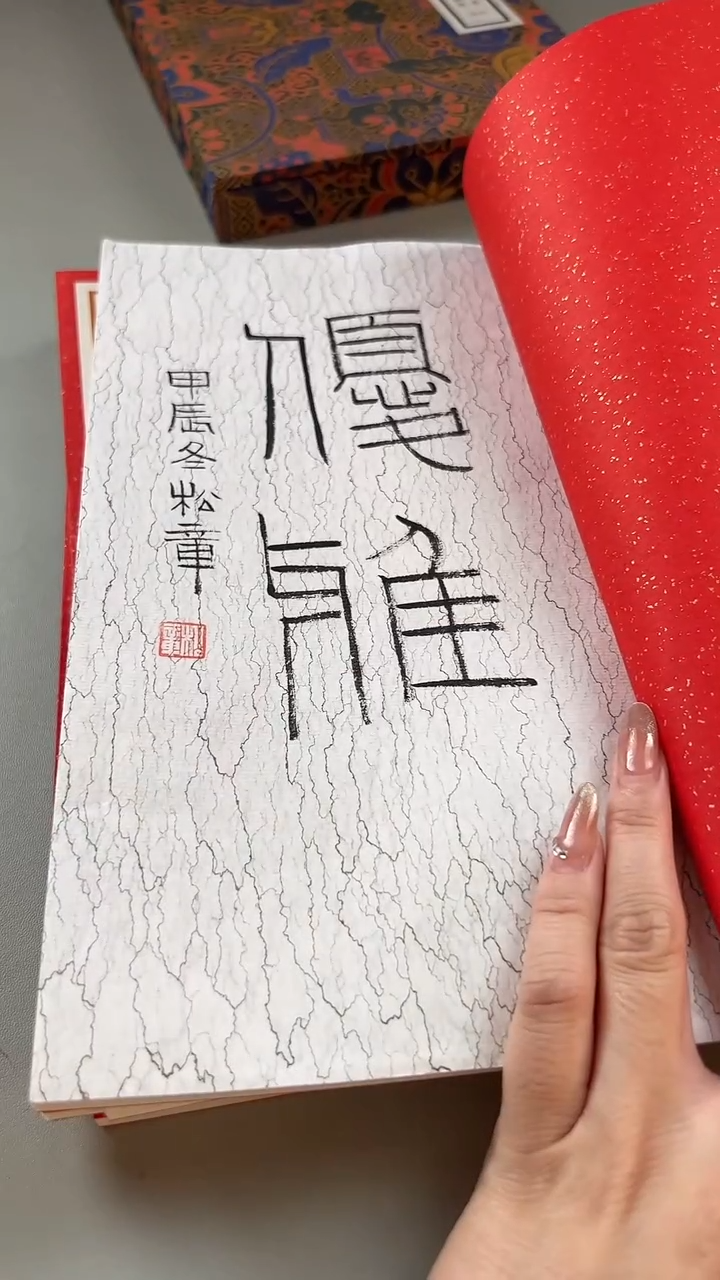 優
雅
甲辰冬松章